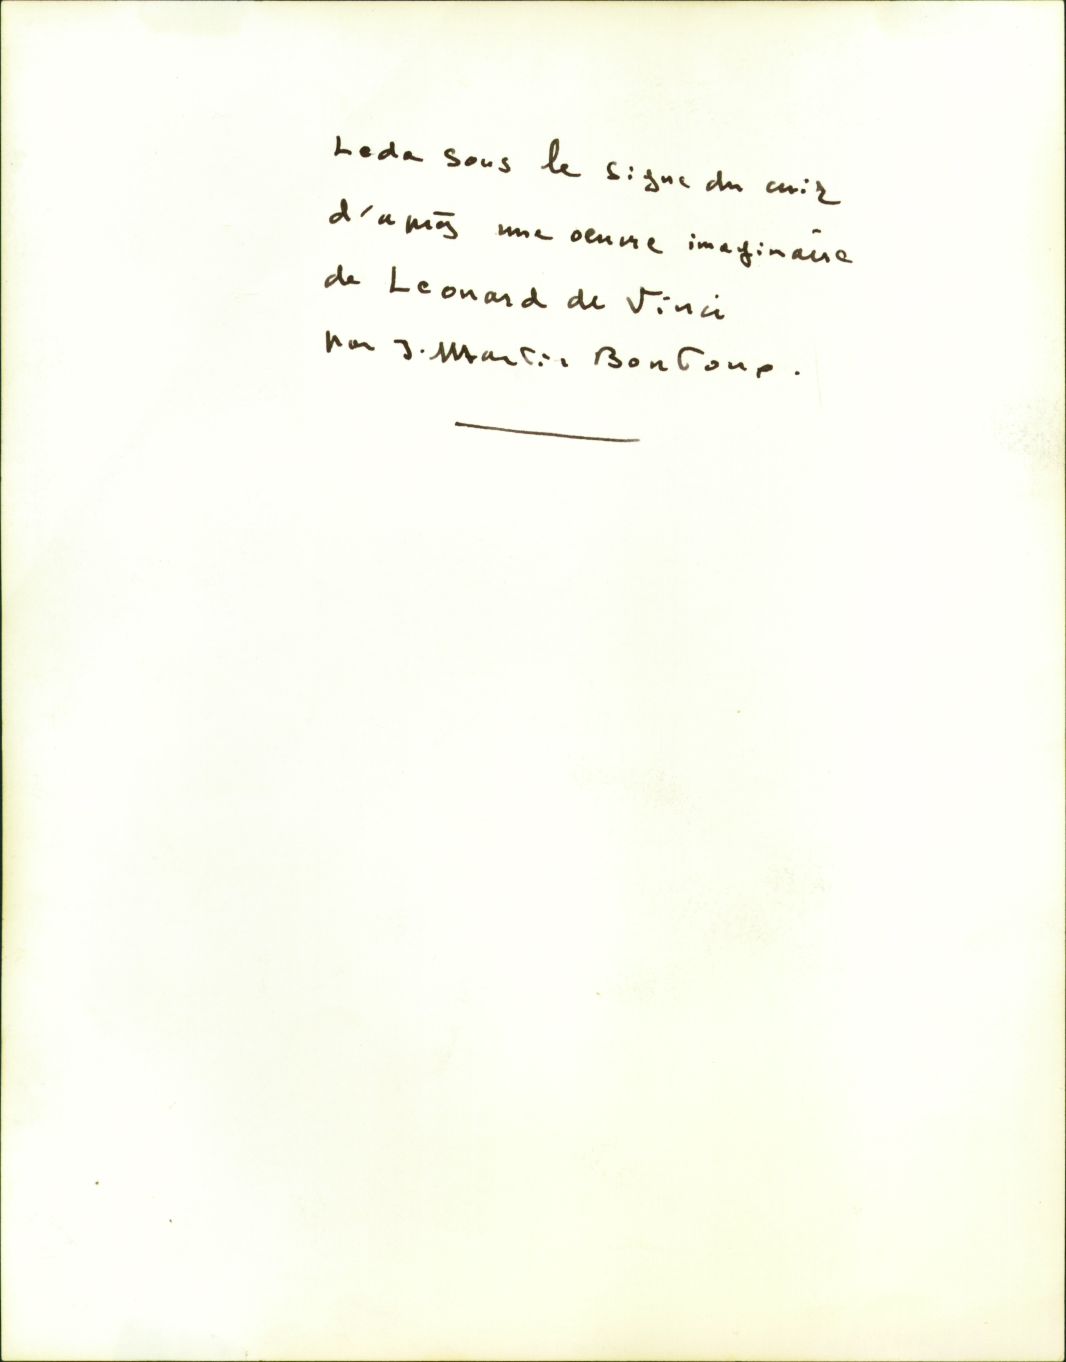 Leda sous le signe du cuir
d'après une oeuvre imaginaire
de Leonard de Vinci
par J. Martin Bontoux.